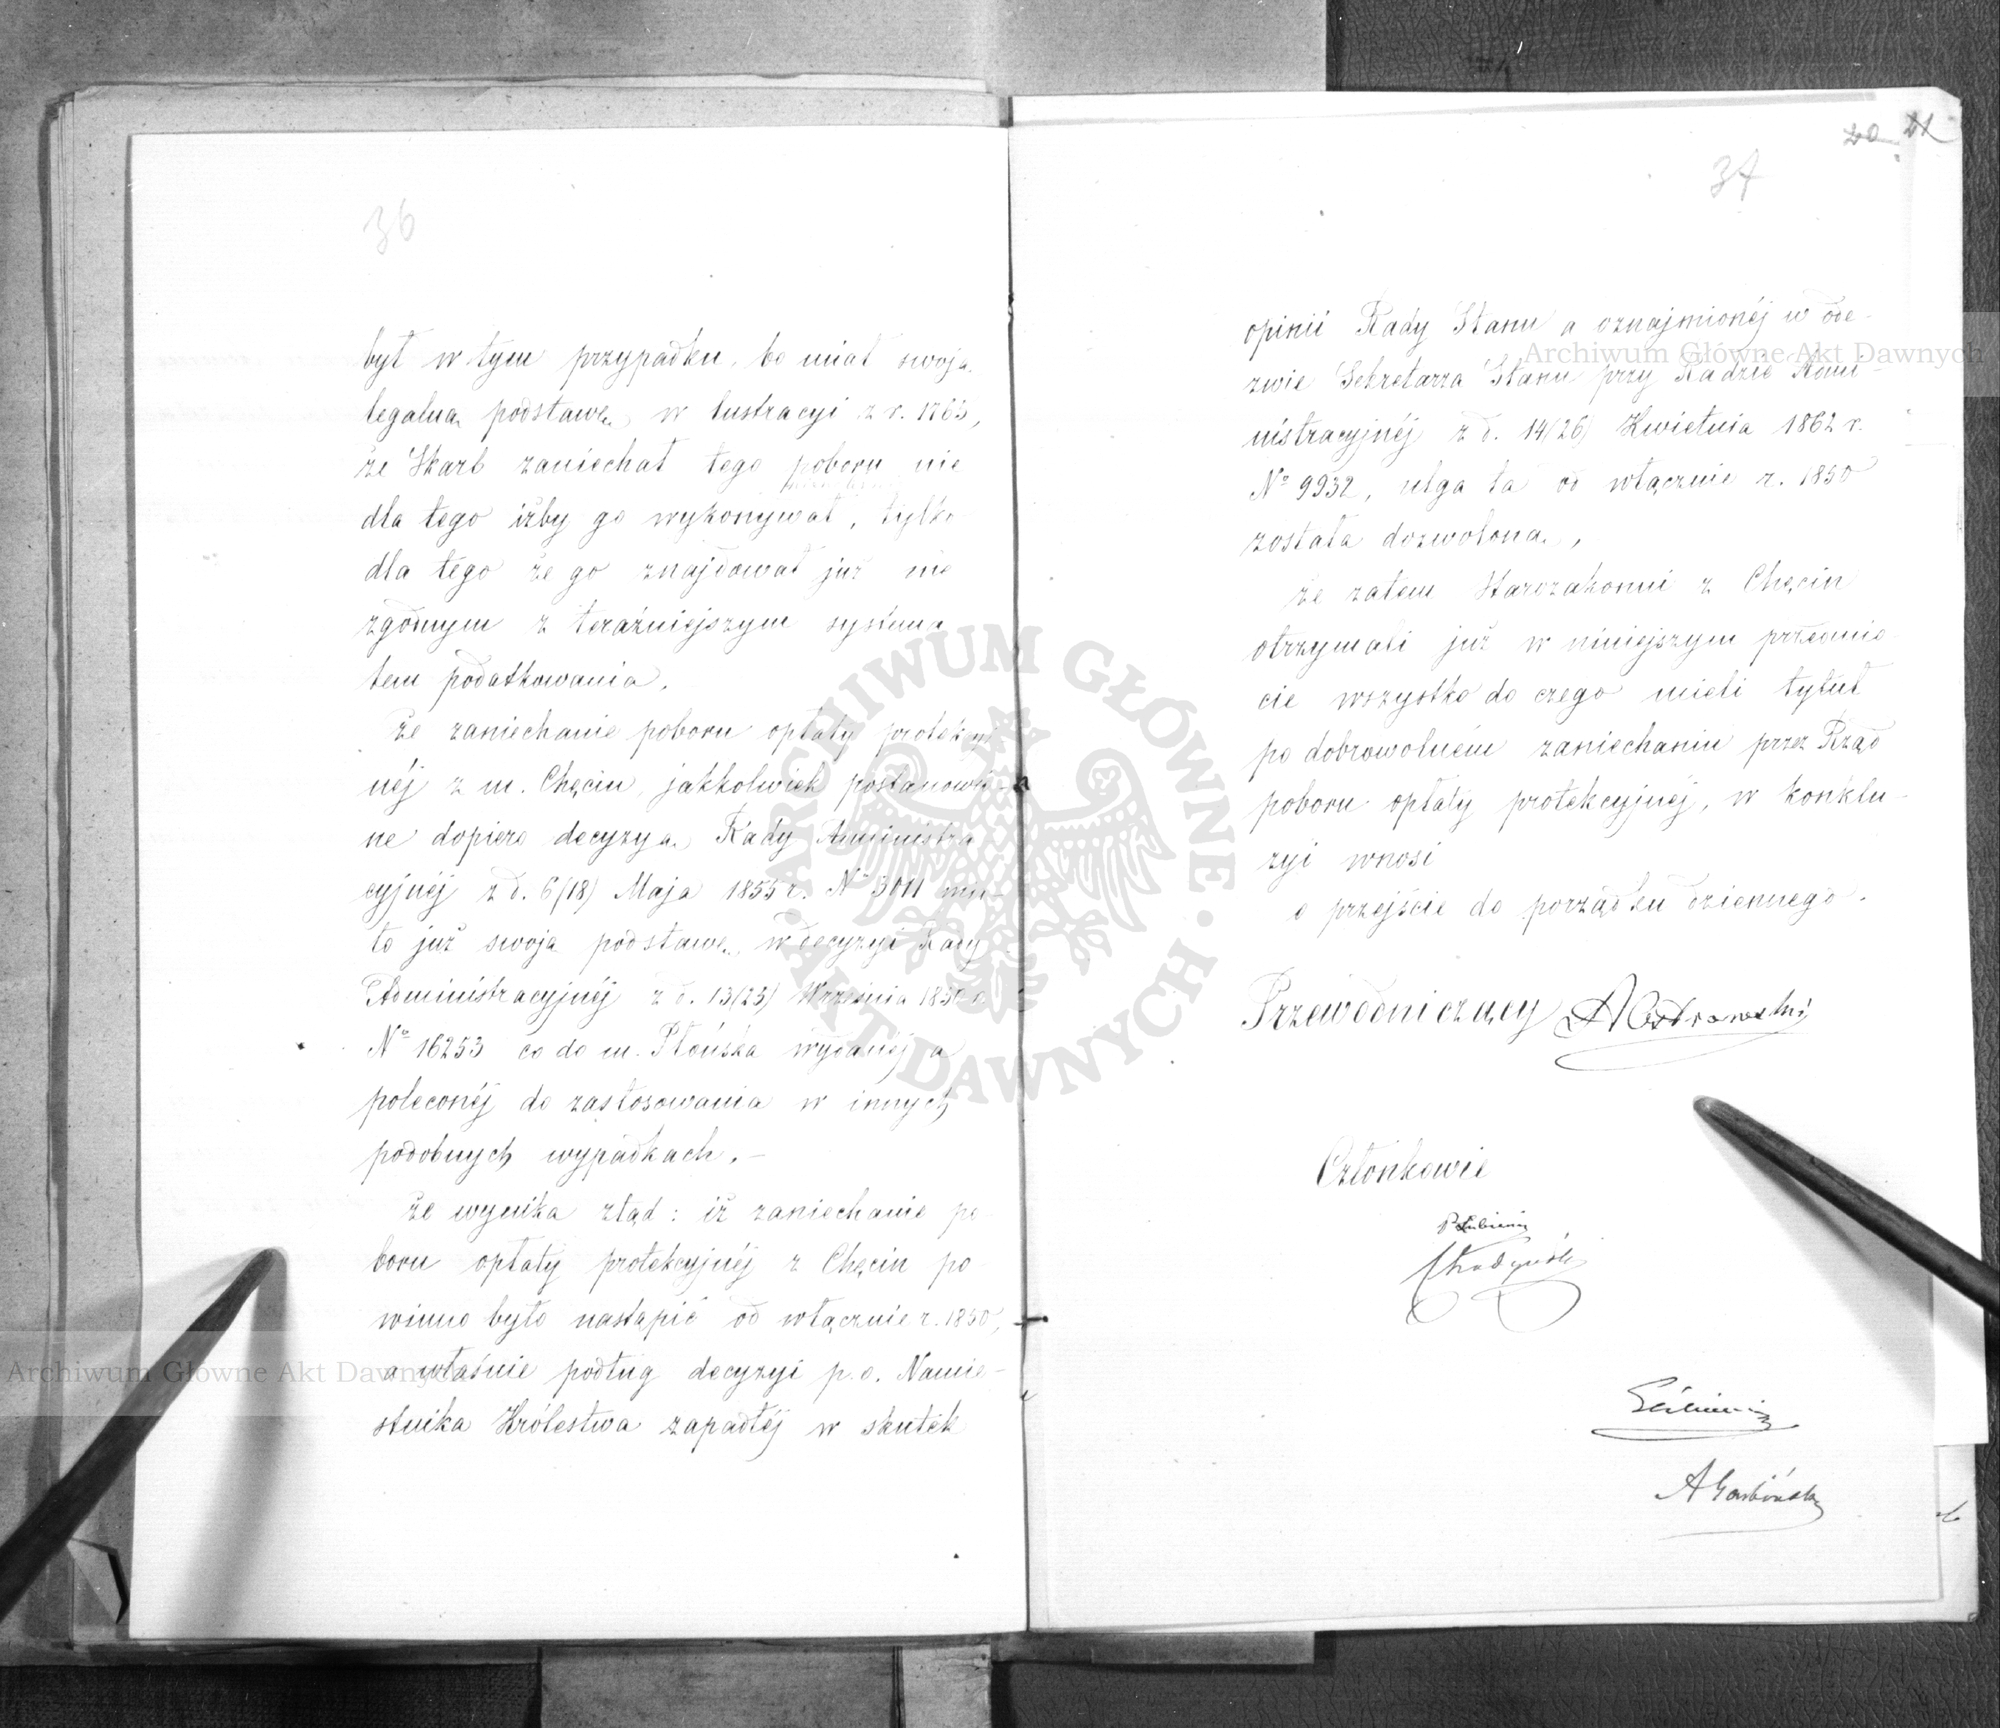 36
był w tym przypadku, bo miał swoją
legalną podstawę w lustracyi z r. 1765,
że Skarb zaniechał tego poboru nie
dla tego iżby go wykonywał, tylko
dla tego że go znajdował już nie
zgodnym z teraźniejszym systema
tem podatkowania.
że zaniechanie poboru opłaty protekcyj
néj z m. Chęcin, jakkolwiek postanowio-
ne dopiero decyzyą Rady Administra
cyjnéj z d. 6/18) Maja 1855 r. Nº 3011 mia-
ło już swoją podstawę w decyzyi Rady
Administracyjnéj z d. 13/25) Września 1850 r.
Nº 16253 co do m. Płońska wydanéj a
poleconéj do zastosowania w innych
podobnych wypadkach. –
że wynika ztąd: iż zaniechanie po-
boru opłaty protekcyjnéj z Chęcin po-
winno było nastąpić od włącznie r. 1850,
a właśnie podług decyzyi p.o. Namie-
stnika Królestwa zapadłéj w skutek
20 21
37
opinii Rady Stanu a oznajmionéj w ode-
zwie Sekretarza Stanu przy Radzie Admi-
nistracyjnéj z d. 14/26) Kwietnia 1862 r.
Nº 9932, ulga ta od włącznie r. 1850
została dozwoloną,
że zatem Starozakonni z Chęcin
otrzymali już w niniejszym przedmio-
cie wszystko do czego mieli tytuł
po dobrowolném zaniechaniu przez Rząd
poboru opłaty protekcyjnéj, w konklu-
zyi wnosi
o przejście do porządku dziennego.
Przewodniczący A Ostrowski
Członkowie
Archiwum Główne Akt Dawnych
Archiwum Główne Akt Dawnych
ARCHIWUM GŁÓWNE · AKT DAWNYCH ·